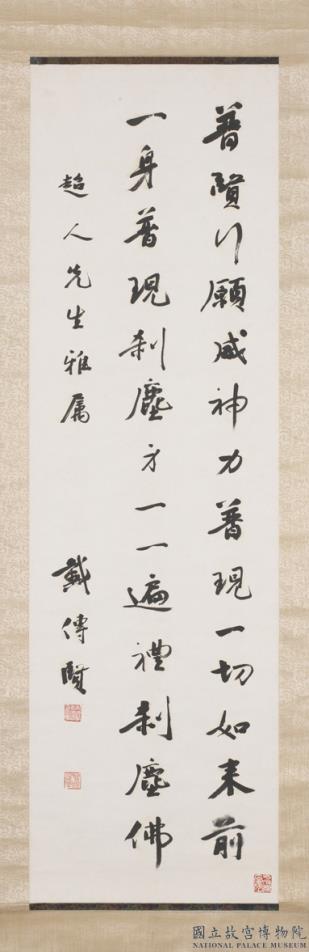 普賢行願威神力普現一切如来前
一身普現刹塵身一一遍禮刹塵佛
超人先生雅屬
戴傳賢
國立故宮博物院
NATIONAL PALACE MUSEUM